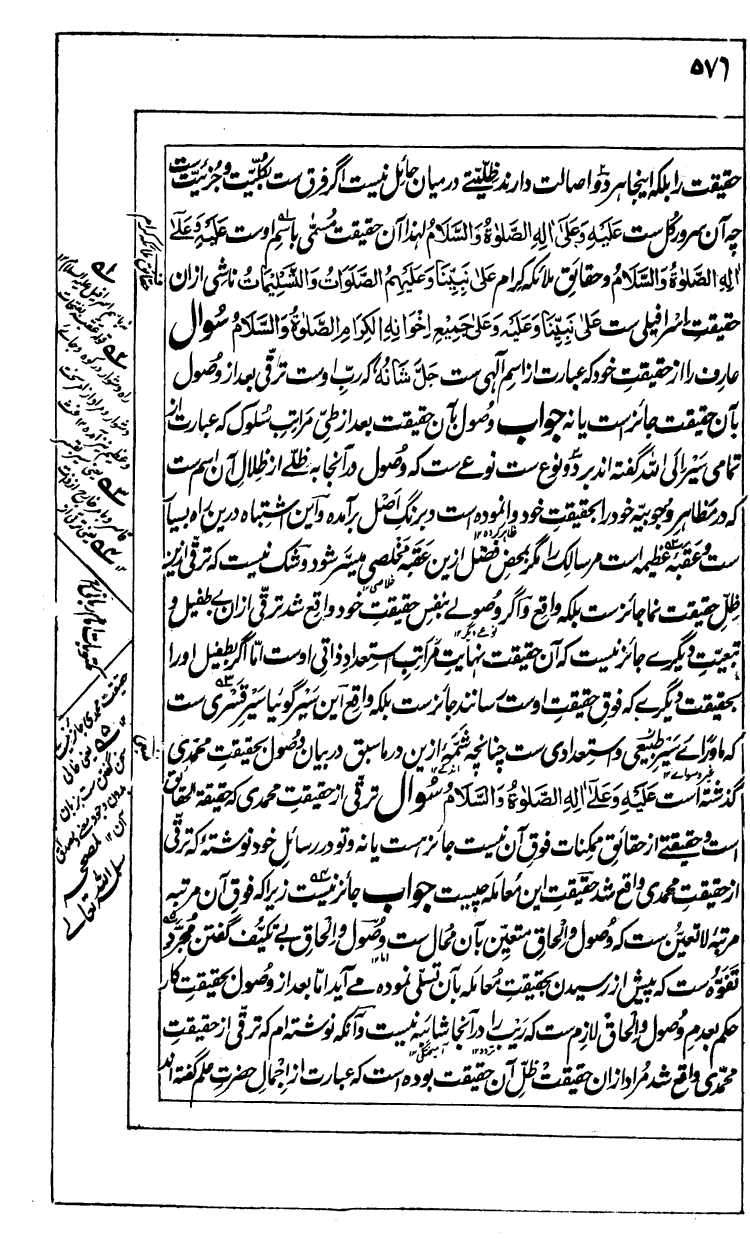 ۵۷۶
حقیقت را بلکه اینجا هر دو اصالت دارند ظلّیتے درمیان حائل نیست اگر فرق ست بکُلّیت و جُزئیّت ست
چه آن سرور کُل ست عَلَیْهِ وَعَلیٰ اٰلِهِ الصَّلٰوةُ وَالسَّلَامُ لهذا آن حقیقت مُسمّی باسم اوست عَلَیْهِ وَعَلےٰ
اٰلِهِ الصَّلٰوةُ وَالسَّلَامُ و حقائق ملائکه کرام عَلیٰ نَبِیِّنَا وَعَلَیْهِمُ الصَّلَوَاتُ وَالتَّسْلِیْمَاتُ ناشی ازان
حقیقتِ اسرافیلی ست عَلیٰ نَبِیِّنَا وَعَلَیْهِ وَعَلیٰ جَمِیْعِ اِخْوَانِهِ الْکِرَامِ الصَّلٰوةُ وَالسَّلَامُ سُوال
عارف را از حقیقتِ خود که عبارت از اسم آلٰهی ست جَلَّ شَانُهٗ که ربِّ اوست ترقّی بعد از وُصول
بآن حقیقت جائز است یا نه جواب وُصول بآن حقیقت بعد از طیِّ مَراتبِ سُلوک که عبارت از
تمامی سَیر اِلی اللّٰه گفته اند بر دو نوع ست نوعے ست که وُصول در آنجا به ظلّے از ظلالِ آن اسم ست
که در مظاهر وجوبیه خود را بحقیقتِ خود وانموده است و برنگِ اَصل برآمده و این اِشتباه درین راه بسیار
ست و عَقَبهٔ عظیمه است مر سالک را مگر بمحض فضل ازین عَقَبه مَخلصی میسّر شود و شک نیست که ترقّی ازین
ظلِّ حقیقت نما جائز ست بلکه واقع و اگر وُصولے بنفسِ حقیقتِ خود واقع شد ترقّی ازان بے طفیل و
تبعیّتِ دیگرے جائز نیست که آن حقیقت نهایتِ مَراتبِ استعدادِ ذاتی اوست امّا اگر بطفیل اورا
بحقیقتِ دیگرے که فوق حقیقتِ اوست رسانند جائز ست بلکه واقع این سَیر گوئیا سَیرِ قَسری ست
که ماورائے سَیرِ طبیعی و استعدادی ست چنانچه شمّهٔ ازین در ما سبق در بیانِ وُصول بحقیقتِ محمّدی
گذشته است عَلَیْهِ وَعَلےٰ اٰلِهِ الصَّلٰوةُ وَالسَّلَامُ سُوال ترقّی از حقیقتِ محمدی که حقیقة الحقائق
است و حقیقتے از حقائقِ ممکنات فوقِ آن نیست جائز ست یا نه و تو در رسائل خود نوشتهٔ که ترقّی
از حقیقتِ محمدی واقع شد حقیقتِ این مُعامله چیست جواب جائز نیست زیرا که فوقِ آن مرتبه
مرتبهٔ لا تعیّن ست که وُصول و اِلحاقِ متعیّن بآن مُحال ست وُصول و اِلحاقِ بے تکیُّف گفتن مُجرّد
تفوّه ست که پیش از رسیدن بحقیقتِ مُعامله بآن تسلّی نموده مے آید امّا بعد از وُصول بحقیقتِ کار
حکم بعدمِ وُصول و اِلحاق لازم ست که رَیب را در آنجا شائبه نیست و آنکه نوشته ام که ترقّی از حقیقتِ
محمّدی واقع شد مُراد ازان حقیقت ظلِّ آن حقیقت بوده است که عبارت از اِجمالِ حضرتِ علم گفته اند
مکتوبات امام ربانی
یعنی خالی
سخن گفتن ست بر زبان
سلمه اللّٰه تعالے